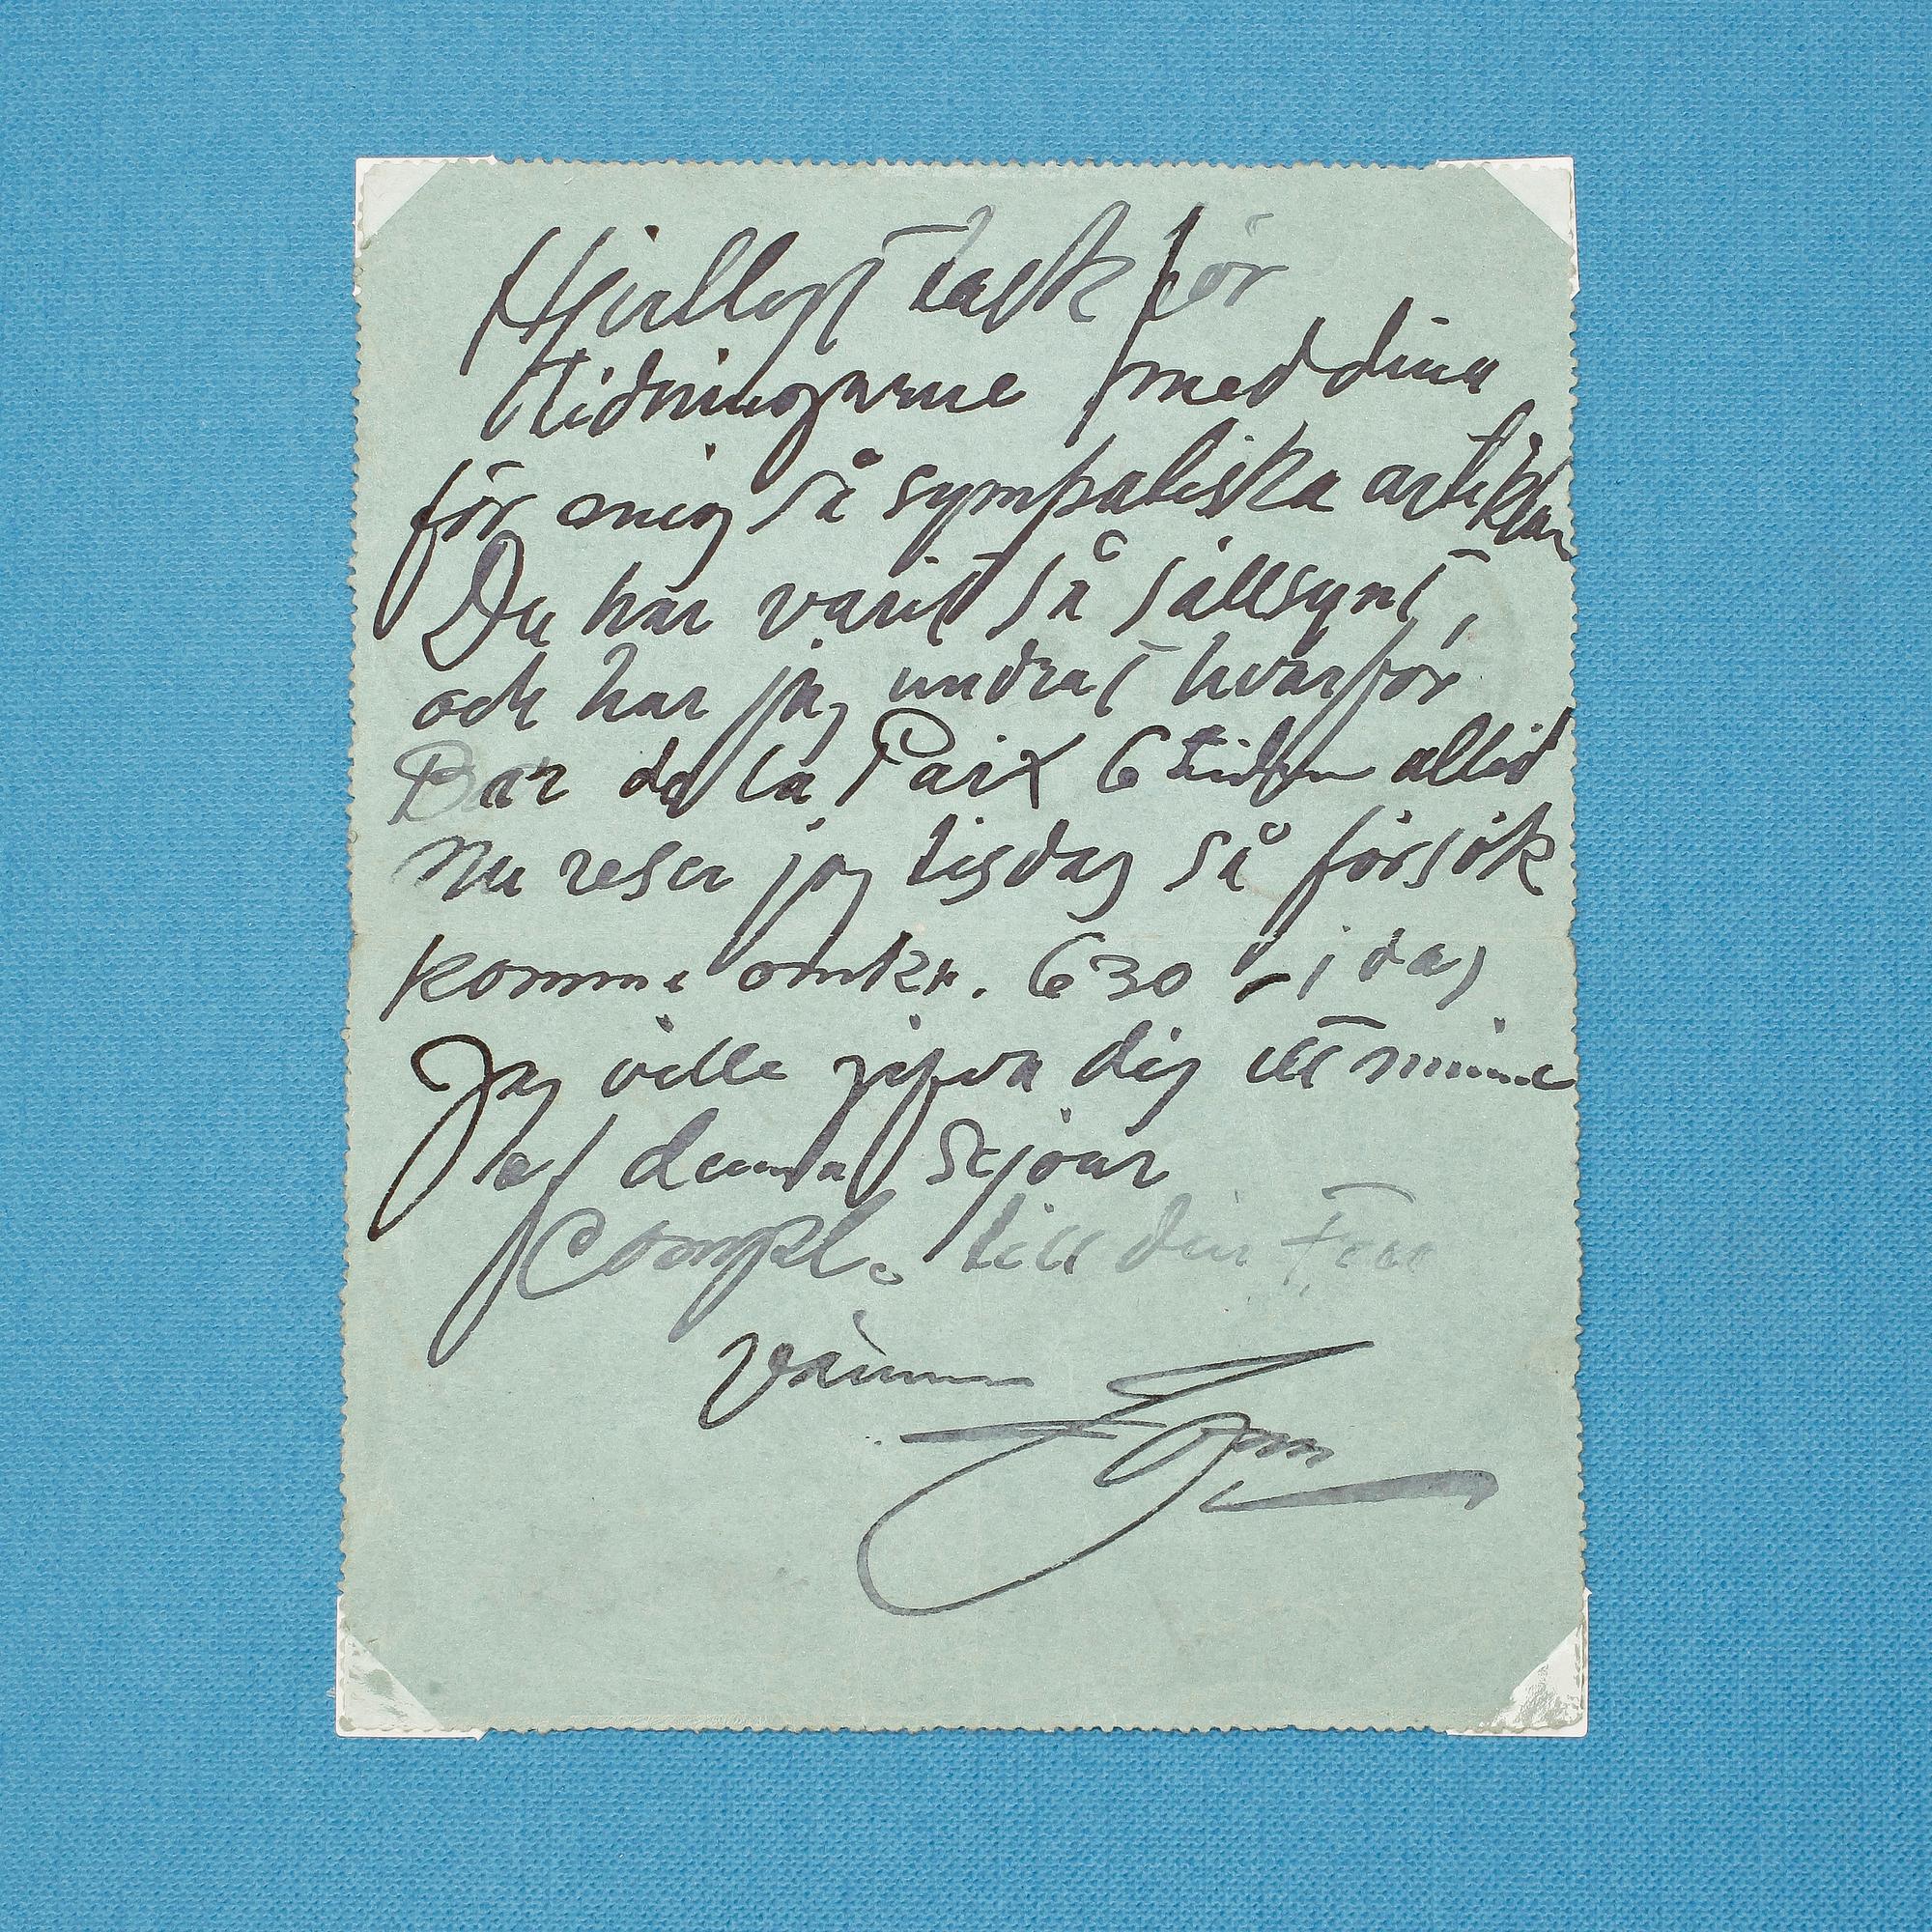 Hjertligt tack för
tidningarne med dina
för mig så sympatiska artiklar
Du har varit så sällsynt,
och har jag undrat hvarför
Bar de la Paix 6 tiden alltid
Nu reser jag tisdag så försök
komma omkr. 630 – i dag
Jag ville gifva dig ett minne
af denna sejour
Compl. till din Fru
Vännen Zorn